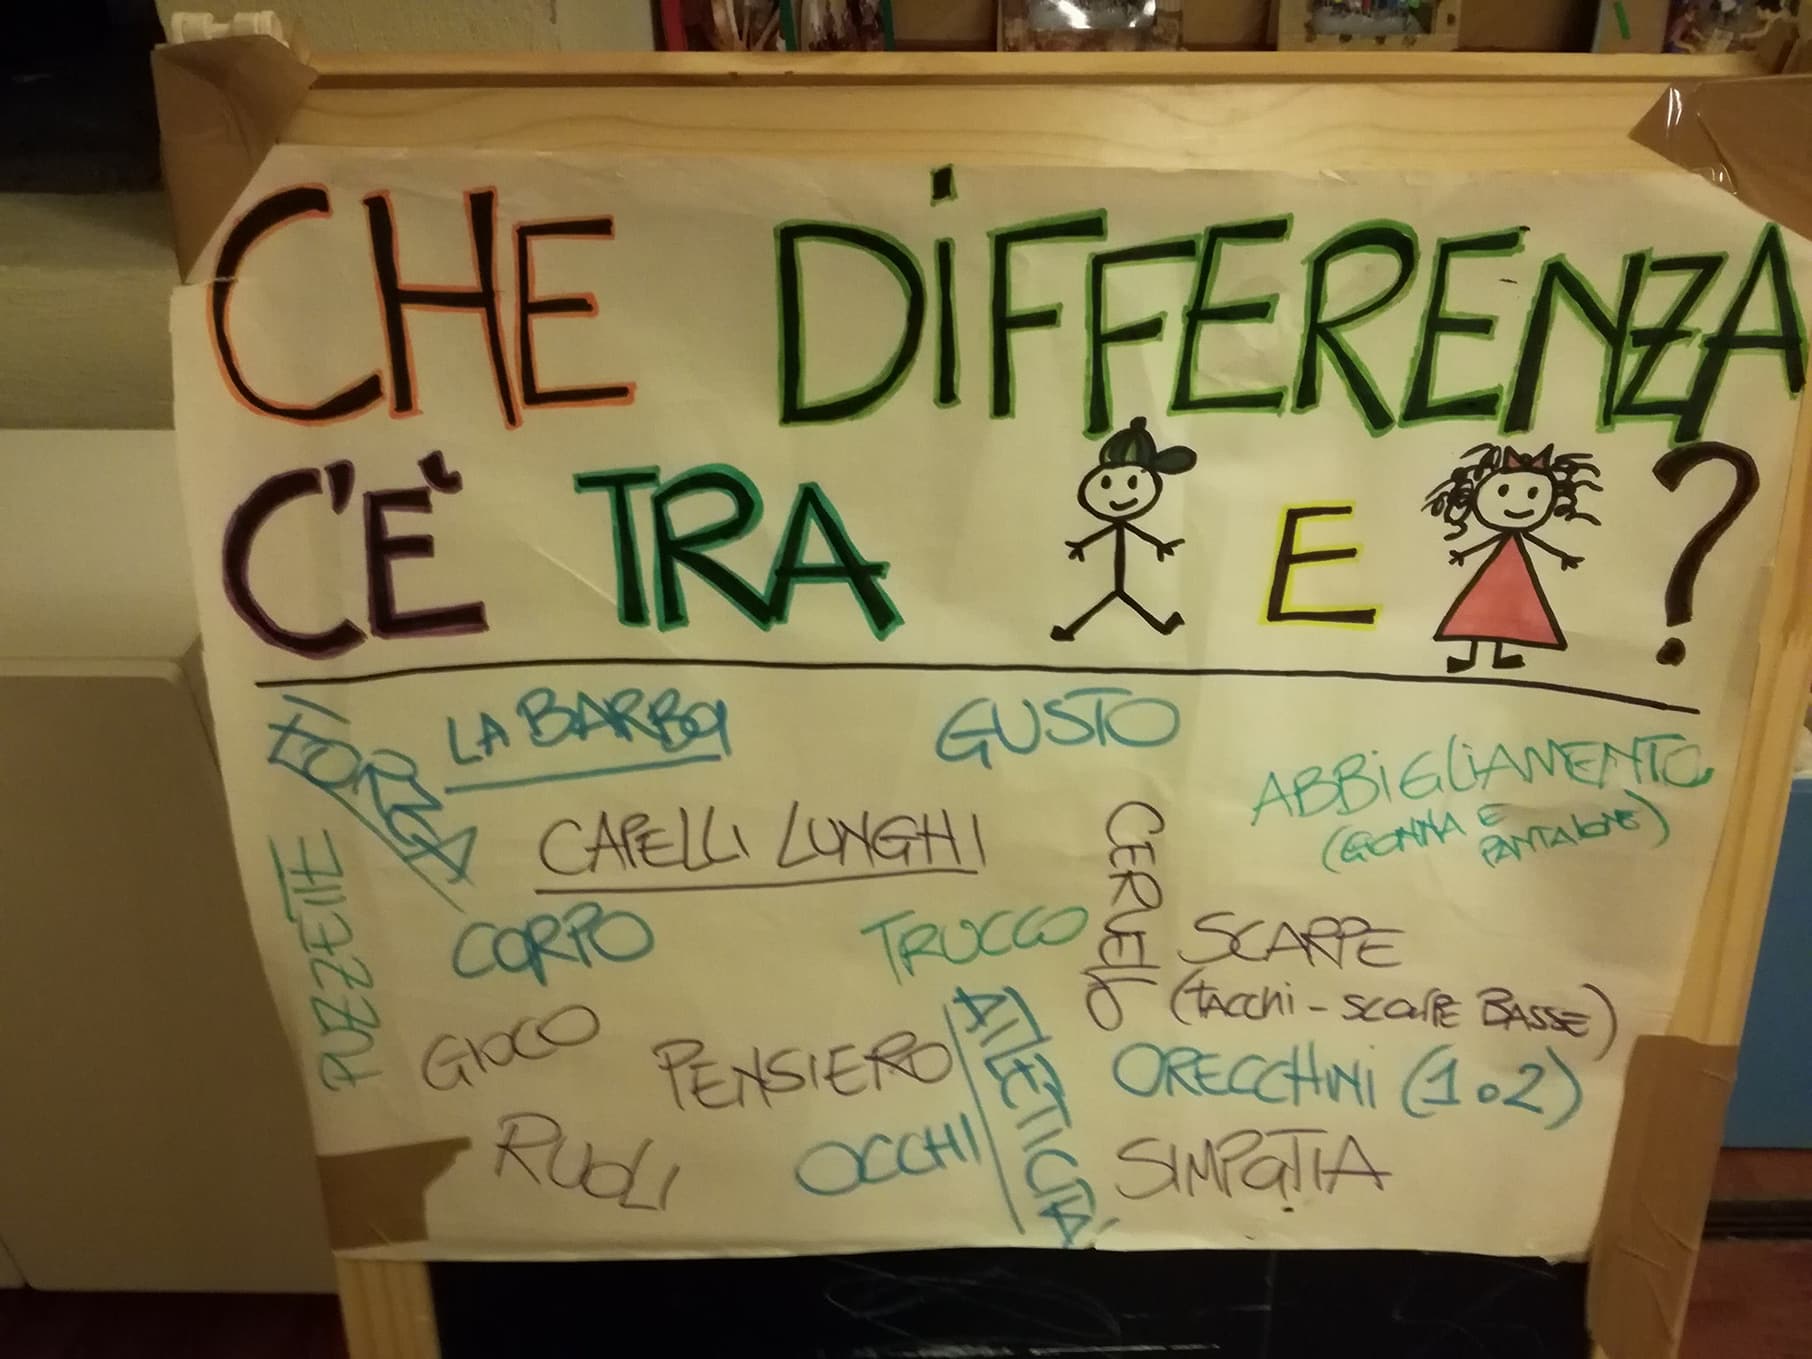 CHE DiFFERENZA
C'È TRA E ?
FORZA
LA BARBA
GUSTO
ABBiGLiAMENTO
(GONNA E
PANTALONE)
CAPELLI LUNGHI
CERVELLO
PUZZETTE
CORPO
TRUCCO
SCARPE
(tacchi - scarpe BASSE)
GIOCO
PENSIERO
ATLETICITÀ
ORECCHINI (1 o 2)
RUOLI
OCCHI
SIMPATIA